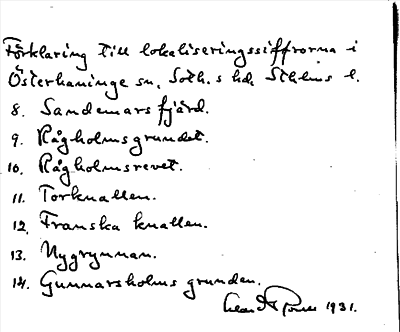 Förklaring till lokaliseringssiffrorna i
Österhaninge sn, Soth.s hd, Sthlms l.
8. Sandemars fjärd.
9. Rågholmsgrundet.
10. Rågholmsrevet.
11. Torknallen.
12. Franska knallen.
13. Nygrynnan.
14. Gunnarsholms grunden.
1931.